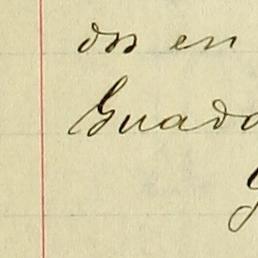 dos en
Guada